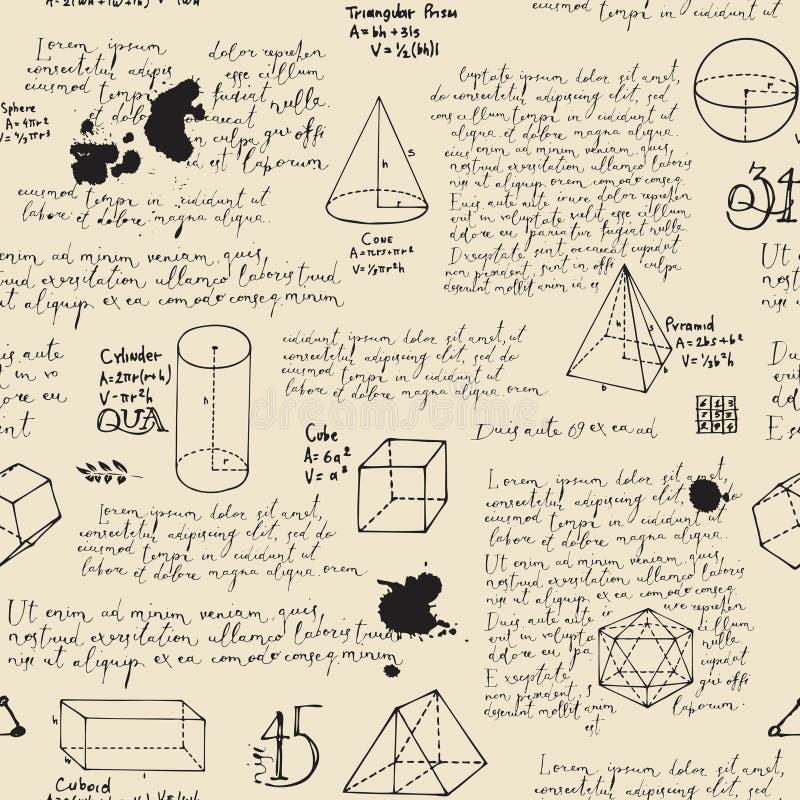 Triangular Prism
A= bh +3ls
V= 1/2(bh)l
Lorem ipsum
consectetur adipis
eiusmod tempi
et dolo
dolor reprehen
esse cillum
fugiat
nulla.
occaecat
in culpa qui offi
id est laborum
Sphere
A= 4πr²
V= 4/3πr³
eiusmod tempi in cididunt ut
labore et dolore magna aliqua.
luptate ipsum dolor sit amet,
consectetur adipiscing elit,
eiusmod tempi in cididunt ut
labore et dolore magna aliqua.
Ut enim ad minim veniam, quis
nostrud exersitation ullamco laboris
nisi ut aliquip ex ea comodo conseq
Euis aute irure dolor uve reprehen
erit in voluptate velit esse cillum
dolore eu pariatur fugiat nulla
Dxeptate sunt occaecat cupidat
non proident, sint in offi culpa
deserunt mollit anim id est
h
s
r
Cone
A=πrs+πr²
V= 1/3πr²h
34
Ut enim ad minim veniam, quis
nostrud exersitation ullamco laboris trud
ut aliquip ex ea comodo conseq minim
Duis aute
in vo
dolore eu
sint
Cylinder
A= 2πr(r+h)
V- πr²h
QUA
h
r
cididunt ipsum dolor sit amet,
consectetur adipiscing elit,
eiusmod tempi in cididunt ut
labore et dolore magna aliqua. orem
h
s
b
b
Pyramid
A= 2bs+b²
V= 1/3b²h
Duis aute 69 ex ea ad
Cube
A= 6a²
V= a³
Lorem ipsum dolor sit amet,
consectetur adipiscing elit,
eiusmod tempi in cididunt ut
labore et dolore magna aliqua. orem
Lorem ipsum dolor sit amet,
consectetur adipiscing elit, do
eiusmod tempi in cididunt ut
labore et dolore magna aliqua.
Ut enim ad minim veniam, quis
nostrud exersitation ullamco laboris
nisi ut aliquip ex ea comodo conseq
Duis aute
erit in volupta
dolore eu
Exeptate
non proident, s
deserunt mollit anim id est
uve reprehen
cillum
nulla
cupidat
qui offi
laborum.
Ut enim ad minim veniam, quis
nostrud exersitation ullamco laboris trud
nisi ut aliquip ex ea comodo conseq minim
h
l
Cuboid
nisi 45
Lorem ipsum dolor sit amet,
consectetur adipiscing elit,
eiusmod tempi in cididunt ut
labore et dolore magna aliqua.
dreamstime